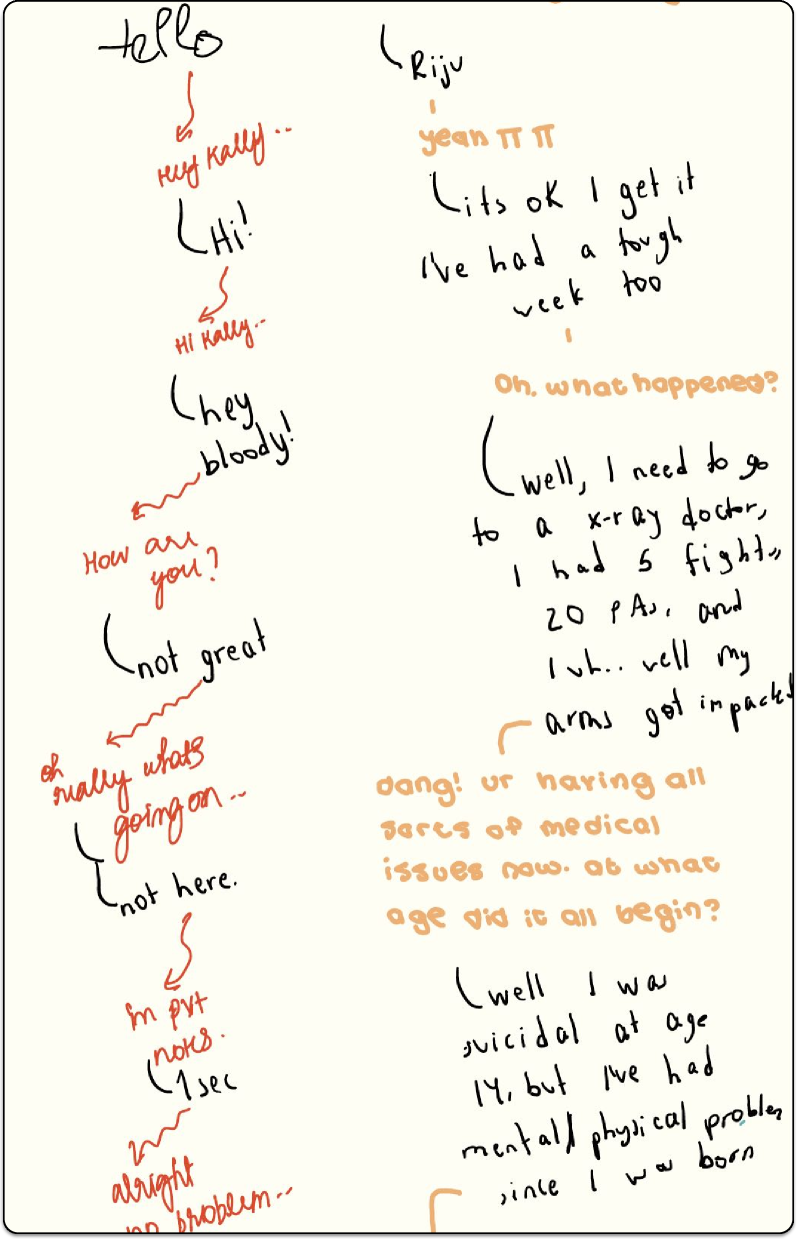 Hello
Hey Kally..
Hi!
Hi Kally..
hey
bloody!
How are
you?
not great
oh
really whats
going on..
not here.
in pvt
notes.
1 sec
alright
no problem..
Riju
yeah ㅠㅠ
its ok I get it
I've had a tough
week too
Oh. what happened?
well, I need to go
to a x-ray doctor,
I had 5 fights,
20 PAs, and
I uh.. well my
arms got impacted
dang! ur having all
sorts of medical
issues now. at what
age did it all begin?
well I was
suicidal at age
14, but I've had
mental/physical problem
since I was born